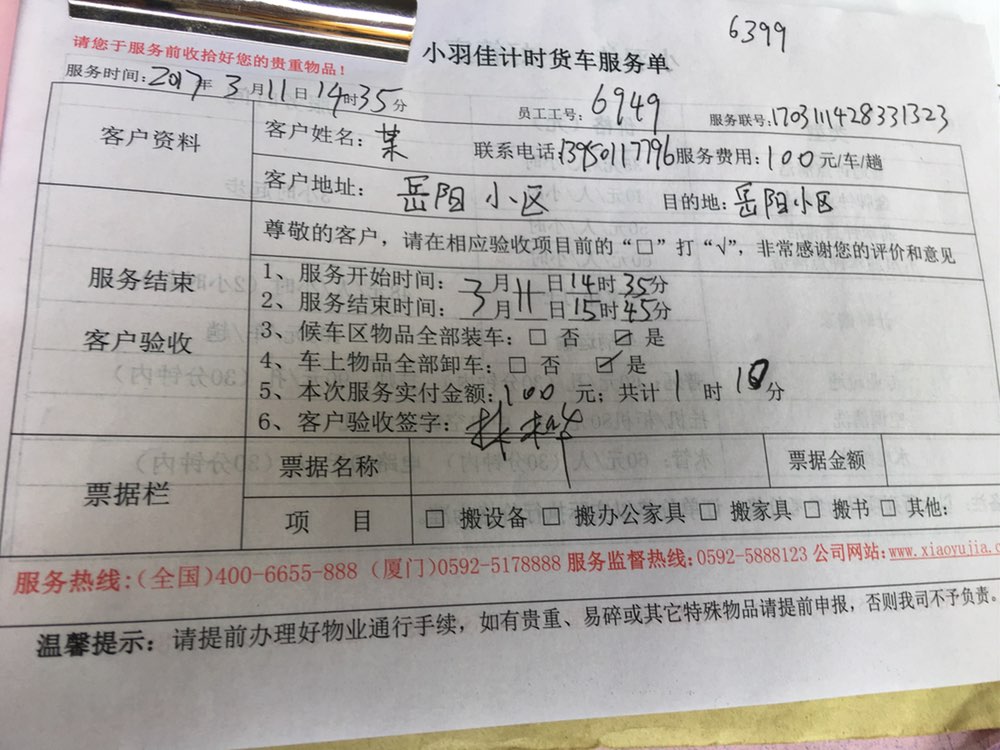 6399
请您于服务前收拾好您的贵重物品！
小羽佳计时货车服务单
服务时间：2017年3月11日14时35分
员工工号：6949
服务联号：170311428331323
客户资料
客户姓名：某 联系电话：13950117796 服务费用：100元/车/趟
客户地址：岳阳小区 目的地：岳阳小区
服务结束
客户验收
尊敬的客户，请在相应验收项目前的“□”打“√”，非常感谢您的评价和意见
1、服务开始时间：3月11日14时35分
2、服务结束时间：3月11日15时45分
3、候车区物品全部装车：□ 否 ☑ 是
4、车上物品全部卸车：□ 否 ☑ 是
5、本次服务实付金额：100元；共计1时10分
6、客户验收签字：
票据栏
票据名称 票据金额
项 目 □ 搬设备 □ 搬办公家具 □ 搬家具 □ 搬书 □ 其他：
服务热线：(全国)400-6655-888 (厦门)0592-5178888 服务监督热线：0592-5888123 公司网站：www.xiaoyujia.c
温馨提示：请提前办理好物业通行手续，如有贵重、易碎或其它特殊物品请提前申报，否则我司不予负责。